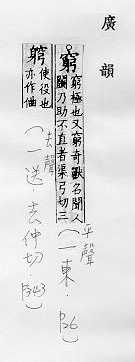 廣韻
窮
窮極也又窮奇獸名聞人
鬬乃助不直者渠弓切三
平聲
(一東. P26)
窮
使役也
亦作
去聲
(一送.去仲切.P343)